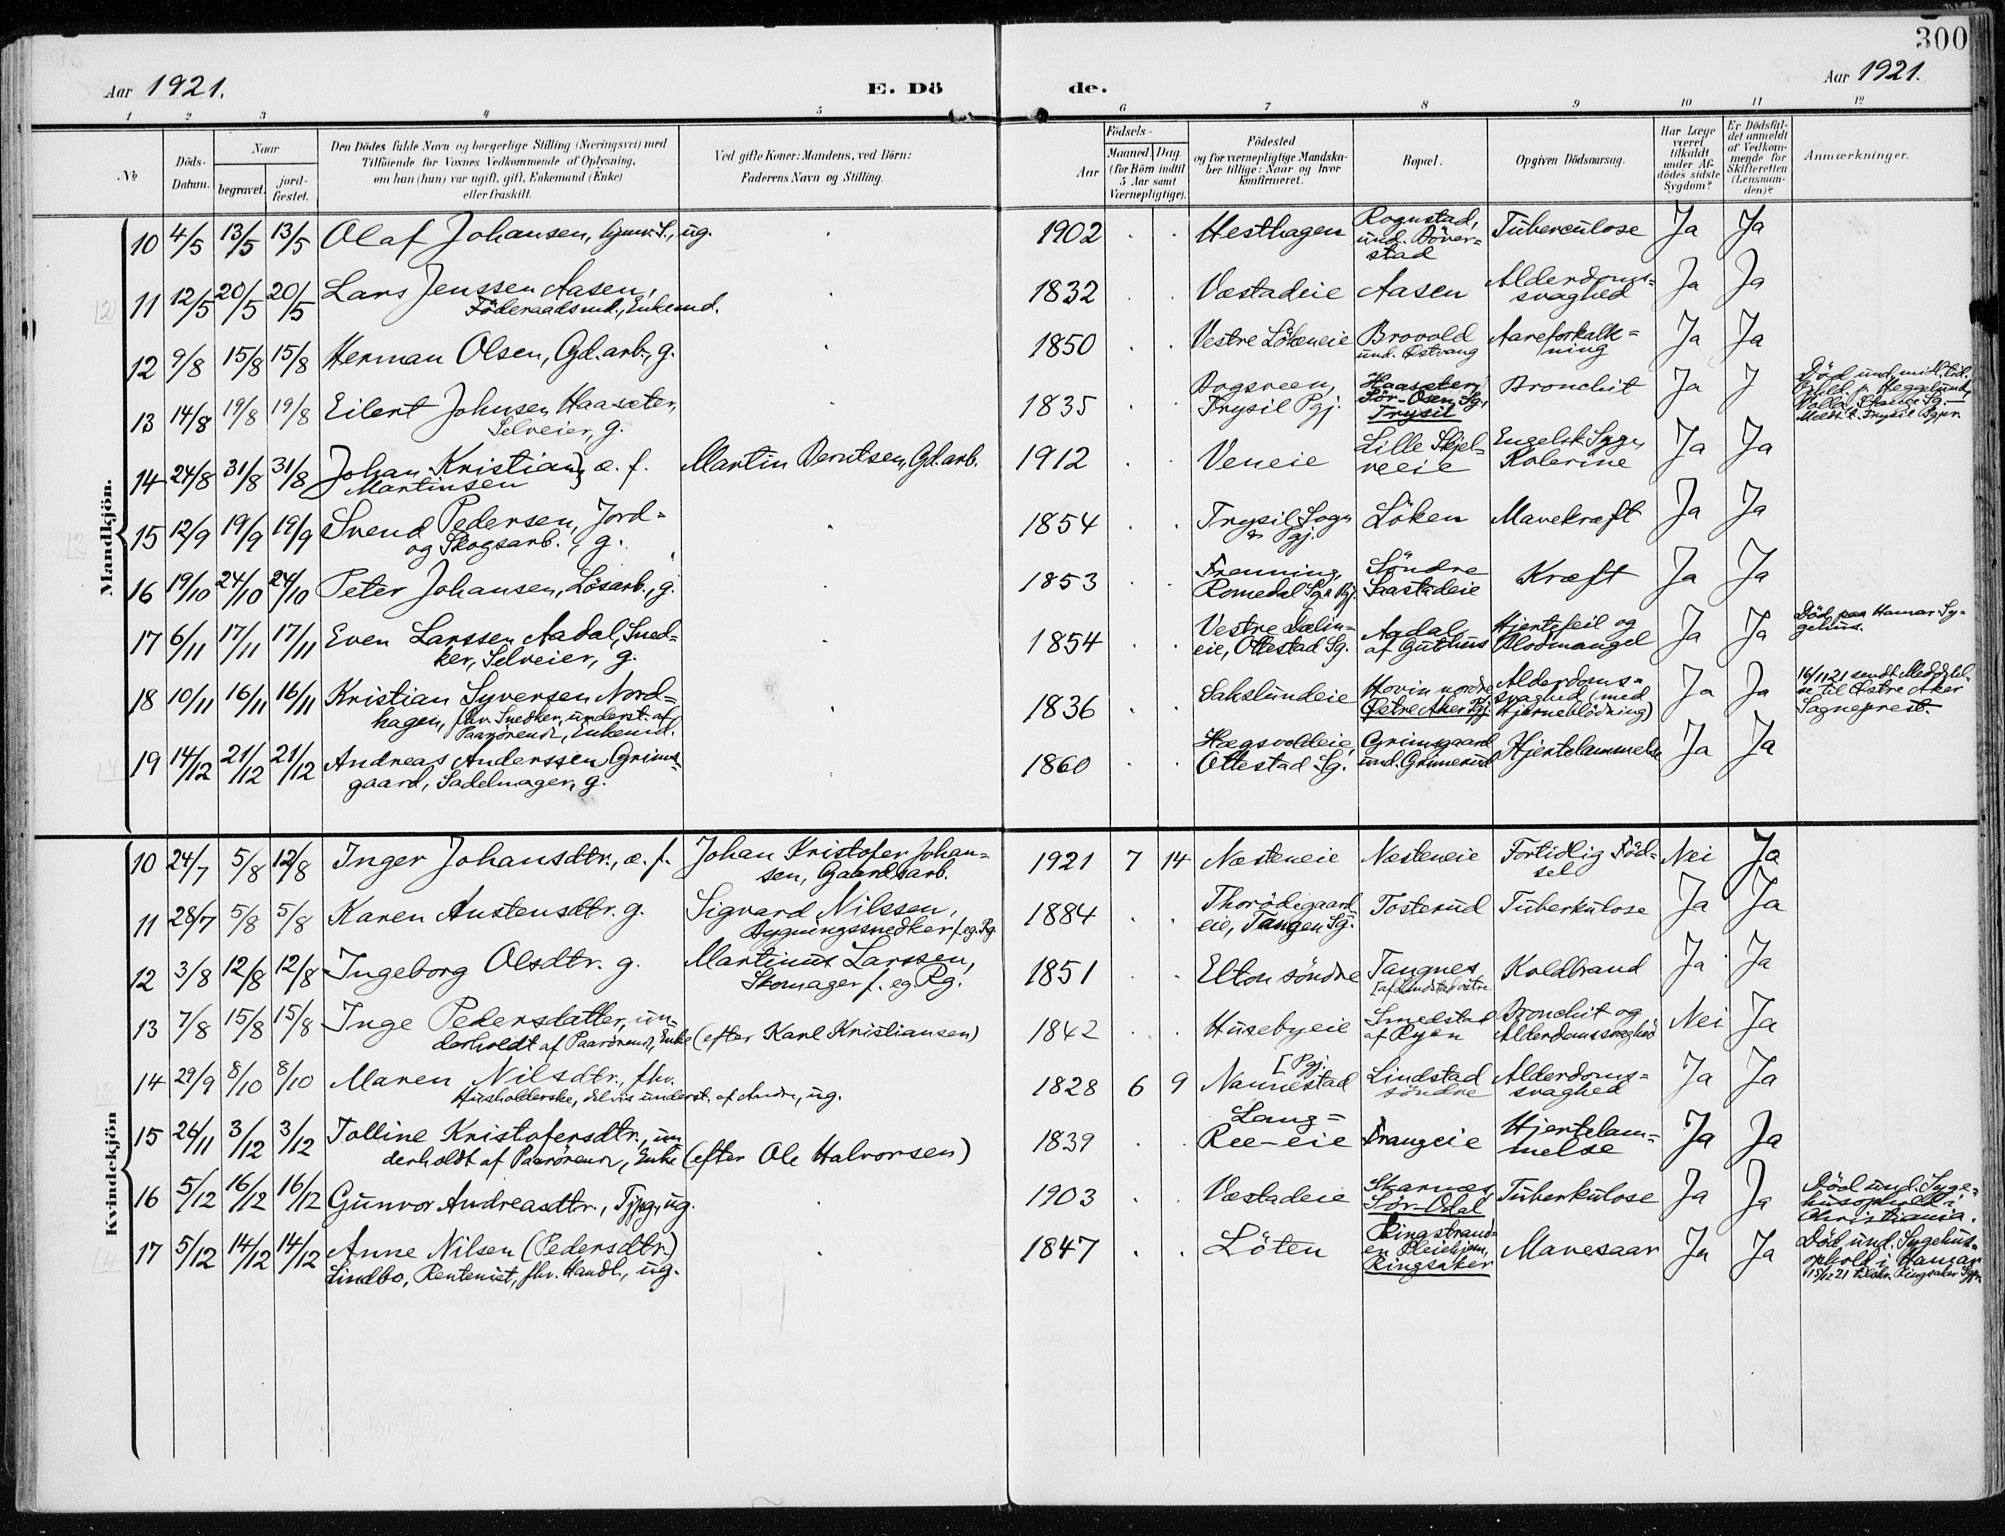 300
Aar 1921.
E. Dö
de.
Aar 1921.
1 2 3 4 5 6 7 8 9 10 11 12
№
Döds-
Datum.
Naar
begravet.
jord-
fæstet.
Den Dödes fulde Navn og borgerlige Stilling (Næringsvei) med
Tilföiende for Voxnes Vedkommende af Oplysning,
om han (hun) var ugift, gift, Enkemand (Enke)
eller fraskilt.
Ved gifte Koner: Mandens, ved Börn:
Faderens Navn og Stilling.
Aar
Födsels-
Maaned. Dag.
(for Börn indtil
5 Aar samt
Værnepligtige).
Födested
og for værnepligtige Mandska-
ber tillige: Naar og hvor
konfirmeret.
Bopæl.
Opgiven Dödsaarsag.
Har Læge
været
tilkaldt
under Af-
dödes sidste
Sygdom?
Er Dödsfal-
det anmeldt
af Vedkom-
mende for
Skifteretten
(Lensman-
den)?
Anmærkninger.
Mandkjön.
10 4/5 13/5 13/5 Olaf Johansen, ug. 1902 Hesthagen Rognstad,
und. Döver-
stad Tuberculose Ja Ja
11 12/5 20/5 20/5 Lars Jenssen Aasen,
Föderaadsmd., Enkemd. 1832 Væstadeie Aasen Alderdoms-
svaghed Ja Ja
12 9/8 15/8 15/8 Herman Olsen, Gd.arb., g. 1850 Vestre Lökeneie Brovold
und. Østvang Aareforkalk-
ning Ja Ja
13 14/8 19/8 19/8 Eilert Johnsen Haaseter,
Selveier, g. 1835 Trysil Pgj. Haaseter,
Sör-Osen Sg.,
Trysil Bronchit Ja J Död und. midl.tid.
Ophld. p. Heggelund,
14 24/8 31/8 31/8 Johan Kristian
Martinsen } æ. f. Martin Berntsen, Gd.arb. 1912 Veneie Lille Skjel-
veeie Engelsk Syge,
Kolerine Ja Ja
15 12/9 19/9 19/9 Svend Pedersen, Jord-
og Skogsarb., g. 1854 Trysil Sogn
Pgj. Löken Mavekræft Ja Ja
16 19/10 24/10 24/10 Peter Johansen, Lösarb., g. 1853 Frenning,
Romedal Sg. Pgj. Söndre
Saastadeie Kræft Ja Ja
17 6/11 17/11 17/11 Even Larssen Aadal, Sned-
ker, Selveier, g. 1854 Vestre Sælin-
eie, Ottestad Sg. Aadal
af Guthus Hjertefeil og
Blodmangel Ja Ja Död paa Hamar Sy-
gehus.
18 10/11 16/11 16/11 Kristian Syversen Nord-
hagen, fhv. Snedker, underst. af
Paarörende, Enkemd. 1836 Sakslundeie Hovin nordre
Østre Aker Pgj. Alderdoms-
svaghed (med
Hjerneblödning) Ja Ja 16/11 21 sendt Meddelel-
se til Østre Aker
Sogneprest.
19 14/12 21/12 21/12 Andreas Anderssen Grims-
gaard, Sadelmager, g. 1860 Hægsvoldeie,
Ottestad Sg. Grimsgaard
und. Grimerud Hjertelammelse Ja Ja
Kvindekjön
10 24/7 5/8 12/8 Inger Johansdtr., æ. f. Johan Kristofer Johan-
sen, Gaardsarb. 1921 7 14 Næsteneie Næsteneie Fortidlig Föd-
sel Nei Ja
11 28/7 5/8 5/8 Karen Austensdtr. g. Sigvard Nilssen,
Bygningssnedker f. eg. Rg. 1884 Thorödegaard
eie, Tangen Sg. Tosterud Tuberkulose Ja Ja
12 3/8 12/8 12/8 Ingeborg Olsdtr. g. Martinus Larssen,
Skomager f. eg. Rg. 1851 Elton söndre Tangnes
[af Lindstad östre Koldbrand Ja Ja
13 7/8 15/8 15/8 Inge Pedersdatter, un-
derholdt af Paarörend., Enke (efter Karl Kristiansen) 1842 Husebyeie Smedstad
af Ryen Bronchit og
Alderdomssvaghed Nei Ja
14 29/9 8/10 8/10 Maren Nilsdtr., fhv.
Husholderske, delvis underst. af Andre, ug. 1828 6 9 [Pgj.
Nannestad Lindstad
söndre Alderdoms-
svaghed Ja Ja
15 26/11 3/12 3/12 Tolline Kristofersdtr., un
derholdt af Paarörend., Enke (efter Ole Halvorsen) 1839 Lang-
Ree-eie Frangeie Hjertelam-
melse Ja Ja
16 5/12 16/12 16/12 Gunvor Andreasdtr., Tjpg., ug. 1903 Væstadeie Skarnes,
Sör-Odal Tuberkulose Ja Ja Död und. Syge-
husophold i
Christiania.
17 5/12 14/12 14/12 Anne Nilsen (Pedersdtr.)
Lindbo, Rentenist, fhv. Handl., ug. 1847 Löten Ringstrand-
en Pleiehjem,
Ringsaker Mavesaar Ja Ja Död und. Sygehus-
ophold i Hamar
15/12 21 tilskr. Ringsaker Sgpr.